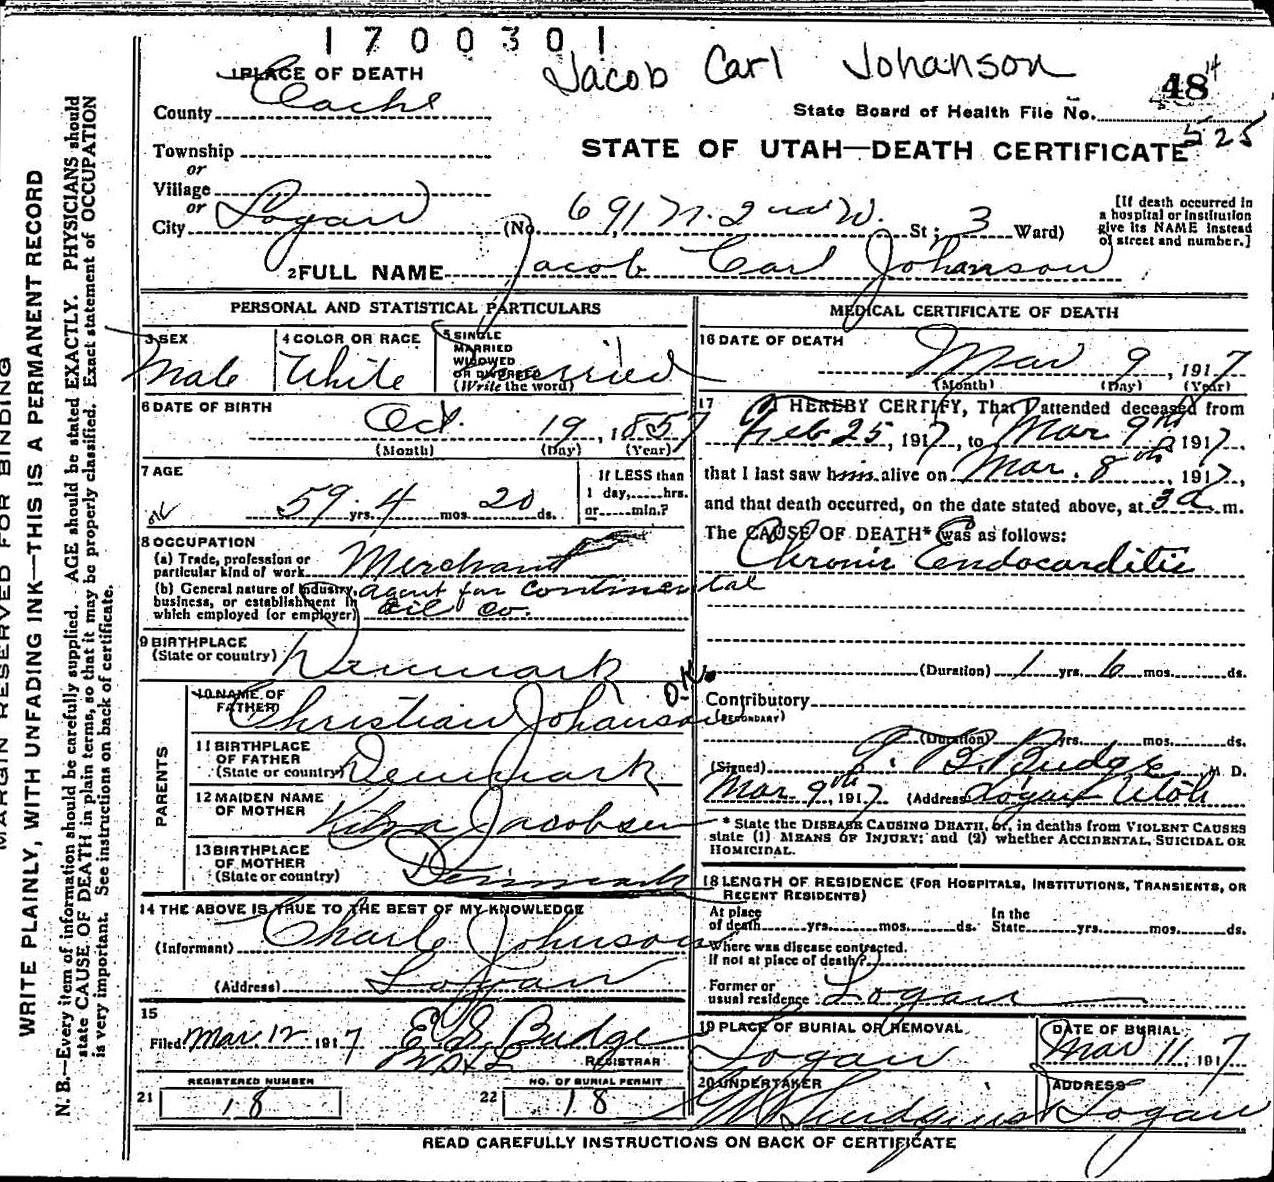 1700301
Jacob Carl Johanson
48 14
525
1 PLACE OF DEATH
County Cache
State Board of Health File No.
STATE OF UTAH—DEATH CERTIFICATE
Township
or
Village
or
City Logan (No. 691 N. 2nd W. St; 3 Ward)
[If death occurred in a hospital or institution give its NAME instead of street and number.]
2 FULL NAME Jacob Carl Johanson
PERSONAL AND STATISTICAL PARTICULARS
3 SEX Male
4 COLOR OR RACE White
5 SINGLE MARRIED WIDOWED OR DIVORCED (Write the word) Married
6 DATE OF BIRTH Oct. 19, 1857
(Month) (Day) (Year)
7 AGE 59 yrs. 4 mos. 20 ds.
If LESS than 1 day,......hrs. or......min.?
8 OCCUPATION
(a) Trade, profession or particular kind of work Merchant
(b) General nature of industry, business, or establishment in which employed (or employer) agent for continental oil co.
9 BIRTHPLACE (State or country) Denmark
O.K.
PARENTS
10 NAME OF FATHER Christian Johanson
11 BIRTHPLACE OF FATHER (State or country) Denmark
12 MAIDEN NAME OF MOTHER Jacobsen
13 BIRTHPLACE OF MOTHER (State or country) Denmark
14 THE ABOVE IS TRUE TO THE BEST OF MY KNOWLEDGE
(Informant) Charle Johnson
(Address) Logan
15 Filed Mar. 12 1917 E S. Budge
REGISTRAR
REGISTERED NUMBER
21 18
NO. OF BURIAL PERMIT
22 18
MEDICAL CERTIFICATE OF DEATH
16 DATE OF DEATH Mar 9, 1917
(Month) (Day) (Year)
17 I HEREBY CERTIFY, That I attended deceased from
Feb 25, 1917, to Mar 9th, 1917.
that I last saw him alive on Mar. 8th, 1917,
and that death occurred, on the date stated above, at 3a m.
The CAUSE OF DEATH* was as follows:
Chronic Endocarditis
(Duration) 1 yrs. 6 mos. ds.
Contributory
(SECONDARY)
(Duration) yrs. mos. ds.
(Signed) B. Budge M. D.
Mar 9th, 1917 (Address) Logan Utah
* State the DISEASE CAUSING DEATH, or, in deaths from VIOLENT CAUSES
state (1) MEANS OF INJURY; and (2) whether ACCIDENTAL, SUICIDAL OR
HOMICIDAL.
18 LENGTH OF RESIDENCE (FOR HOSPITALS, INSTITUTIONS, TRANSIENTS, OR
RECENT RESIDENTS)
At place of death yrs. mos. ds. In the State yrs. mos. ds.
Where was disease contracted.
if not at place of death?
Former or usual residence Logan
19 PLACE OF BURIAL OR REMOVAL Logan
DATE OF BURIAL Mar 11, 1917
20 UNDERTAKER
ADDRESS Logan
READ CAREFULLY INSTRUCTIONS ON BACK OF CERTIFICATE
MARGIN RESERVED FOR BINDING
WRITE PLAINLY, WITH UNFADING INK—THIS IS A PERMANENT RECORD
N. B.—Every item of information should be carefully supplied. AGE should be stated EXACTLY. PHYSICIANS should
state CAUSE OF DEATH in plain terms, so that it may be properly classified. Exact statement of OCCUPATION
is very important. See instructions on back of certificate.